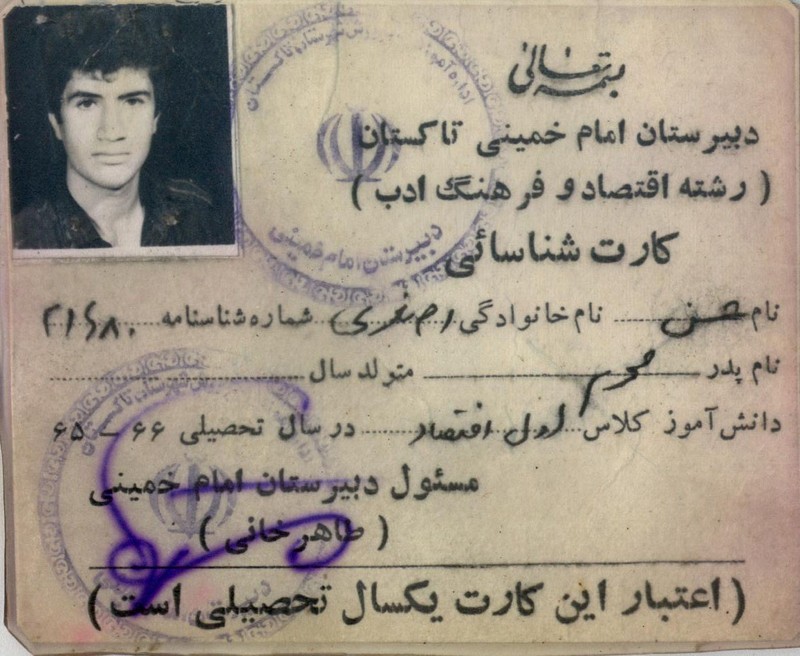 بسمه تعالی
دبیرستان امام خمینی تاکستان
( رشته اقتصاد و فرهنگ ادب )
کارت شناسائی
نام حسن نام خانوادگی اصغری شماره شناسنامه
نام پدر محرم متولد سال
دانش آموز کلاس اول اقتصاد در سال تحصیلی ۶۶ – ۶۵
مسئول دبیرستان امام خمینی
( طاهرخانی )
( اعتبار این کارت یکسال تحصیلی است )
دبیرستان امام خمینی